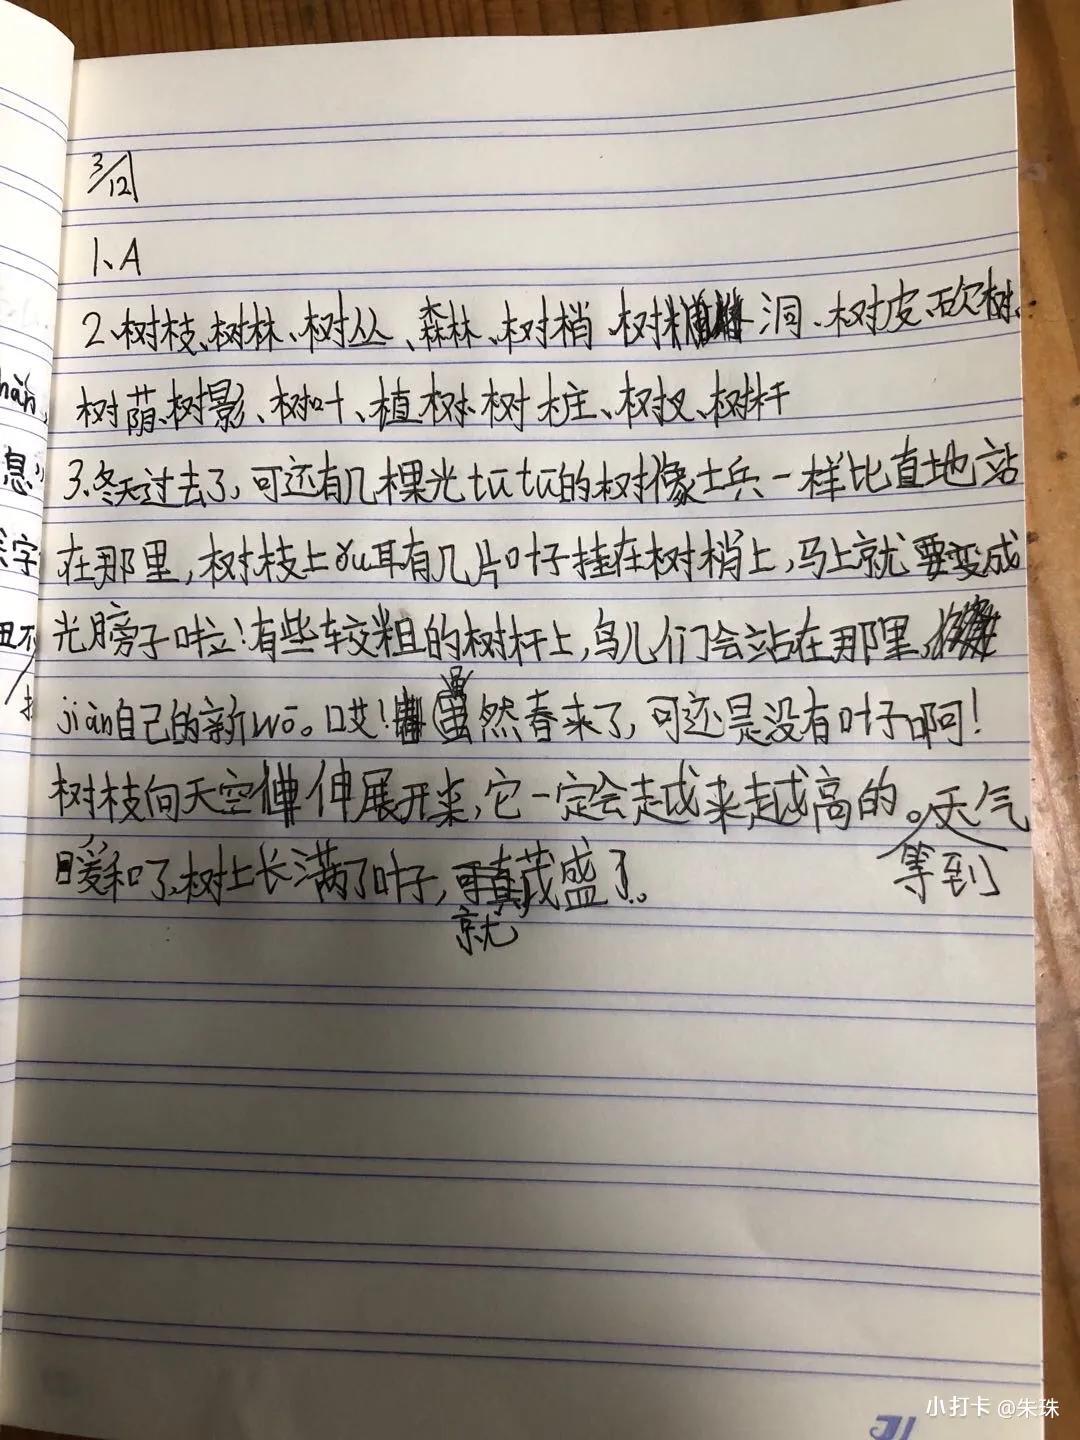 3/12
1、A
2、树枝、树林、树丛、森林、树梢、树洞、树皮、砍树、
树荫、树影、树叶、植树、树桩、树杈、树杆
3.冬天过去了,可还有几棵光tū tū的树像士兵一样比直地站
在那里,树枝上ǒu耳有几片叶子挂在树梢上,马上就要变成
光膀子啦!有些较粗的树杆上,鸟儿们会站在那里,
jiàn自己的新wō。哎!虽然春来了,可还是没有叶子啊!
树枝向天空伸展开来,它一定会越来越高的。等到天气
暖和了,树上长满了叶子,就茂盛了。
hàn
息
字
丑不
小打卡 @朱珠